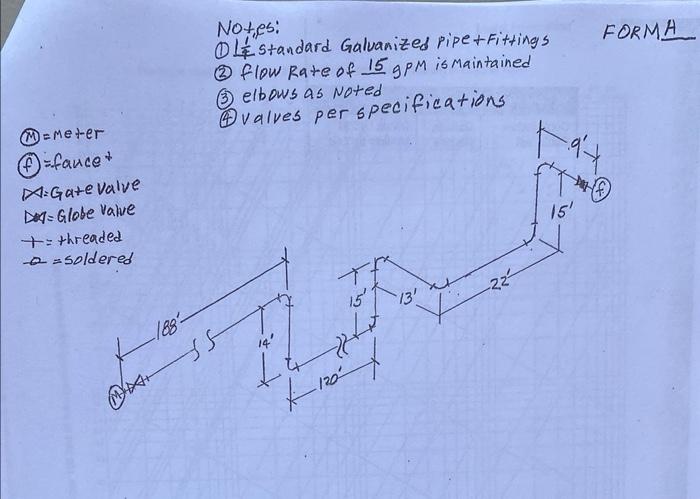 Notes:
FORM A
① 1¼ Standard Galvanized Pipe + Fittings
② flow Rate of 15 gPM is Maintained
③ elbows as Noted
④ valves per specifications
Ⓜ = meter
ⓕ = faucet
= Gate valve
= Globe Valve
= threaded
= soldered
9'
f
15'
22'
188'
15'
13'
14'
120'
M